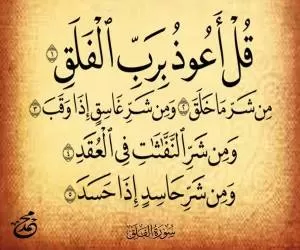 قُلْ أَعُوذُ بِرَبِّ الْفَلَقِ ۝١
مِن شَرِّ مَا خَلَقَ ۝٢ وَمِن شَرِّ غَاسِقٍ إِذَا وَقَبَ ۝٣
وَمِن شَرِّ النَّفَّٰثَٰتِ فِي الْعُقَدِ ۝٤
وَمِن شَرِّ حَاسِدٍ إِذَا حَسَدَ ۝٥
سُورَةُ الفَلَقِ